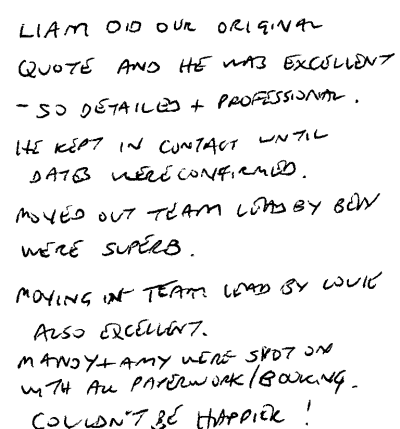 LIAM DID OUR ORIGINAL
QUOTE AND HE WAS EXCELLENT
- SO DETAILED + PROFESSIONAL.
HE KEPT IN CONTACT UNTIL
DATES WERE CONFIRMED.
MOVED OUT TEAM LEAD BY BEN
WERE SUPERB.
MOVING IN TEAM LEAD BY LOUIE
ALSO EXCELLENT.
MANDY + AMY WERE SPOT ON
WITH ALL PAPERWORK/BOOKING.
COULDN'T BE HAPPIER!